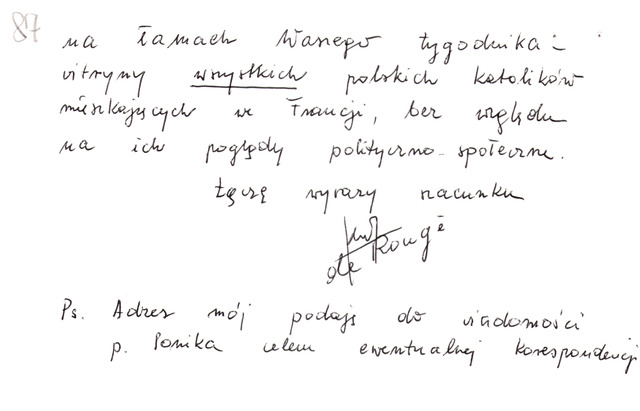 87
na łamach Waszego tygodnika -
witryny wszystkich polskich katolików
mieszkających we Francji, bez względu
na ich poglądy polityczno-społeczne.
Łączę wyrazy szacunku
de Rougé
Ps. Adres mój podaję do wiadomości
p. celem ewentualnej korespondencji